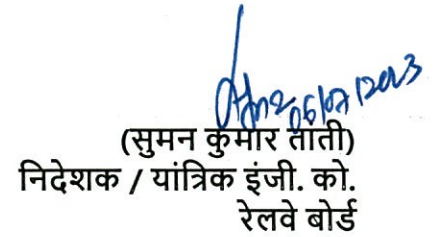 06/07/2023
(सुमन कुमार ताँती)
निदेशक / यांत्रिक इंजी. को.
रेलवे बोर्ड